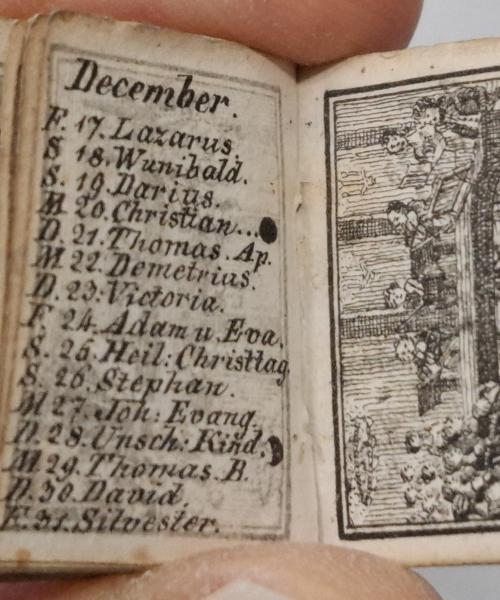 December.
F. 17. Lazarus
S 18. Wunibald.
S. 19. Darius.
M 20. Christian...
D. 21. Thomas. Ap.
M 22. Demetrius.
D. 23. Victoria.
F. 24. Adam u. Eva.
S. 25. Heil: Christtag
S. 26. Stephan.
M 27. Joh: Evang.
D. 28. Unsch: Kind.
M 29. Thomas. B.
D. 30. David
F. 31. Silvester.